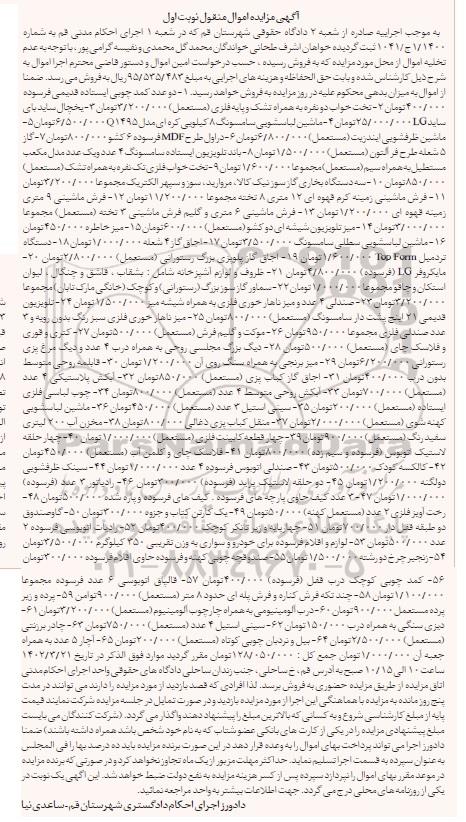 آگهی مزایده اموال منقول نوبت اول
به موجب اجراییه صادره از شعبه ۲ دادگاه حقوقی شهرستان قم که در شعبه ۱ اجرای احکام مدنی قم به شماره
ثبت گردیده خواهان اشرف طحانی خواندگان محمد گل محمدی و نفیسه گرامی پور، با توجه به عدم
تخلیه اموال از محل مورد مزایده که به فروش رسیده، حسب درخواست امین اموال و دستور قاضی محترم اجرا اموال به
شرح ذیل کارشناس شده و بابت حق الحفاظه و هزینه های اجرایی به مبلغ ۹۵/۵۳۵/۴۸۳ ریال به فروش می رسد. ضمنا
از اموال به میزان بدهی محکوم علیه در روز مزایده به فروش خواهد رسید. ۱- دو عدد کمد چوبی ایستاده قدیمی فرسوده
۴۰۰/۰۰۰ تومان ۲- تخت خواب دو نفره به همراه تشک و پایه فلزی (مستعمل) ۳/۲۰۰/۰۰۰ تومان ۳- یخچال ساید بای
ساید LG ۲۵/۰۰۰/۰۰۰ تومان ۴- ماشین لباسشویی سامسونگ ۸ کیلویی کره ای مدل Q۱۴۹۵ ۶/۵۰۰/۰۰۰ تومان ۵-
ماشین ظرفشویی ایندزیت (مستعمل) ۶/۸۰۰/۰۰۰ تومان ۶- دراول طرح MDF فرسوده ۶ کشو ۸۰۰/۰۰۰ تومان ۷- گاز
۵ شعله طرح فر آلتون (مستعمل) ۱/۵۰۰/۰۰۰ تومان ۸- باند تلویزیون ایستاده سامسونگ ۴ عدد و یک عدد مدل مکعب
مستطیل به همراه سیم (مستعمل) مجموعا ۱/۶۰۰/۰۰۰ تومان ۹- تخت خواب فلزی تک نفره به همراه تشک (مستعمل)
۸۵۰/۰۰۰ تومان ۱۰- سه دستگاه بخاری گاز سوز نیک کالا، مروارید، سوز و سپهر الکتریک مجموعا ۳/۲۰۰/۰۰۰ تومان
۱۱- فرش ماشینی زمینه کرم قهوه ای ۱۲ متری ۸ تخته مجموعا ۱۱/۲۰۰/۰۰۰ تومان ۱۲- فرش ماشینی ۹ متری
زمینه قهوه ای ۱/۲۰۰/۰۰۰ تومان ۱۳- فرش ماشینی ۶ متری و گلیم فرش ماشینی ۳ تخته (مستعمل) مجموعا
۳/۰۰۰/۰۰۰ تومان ۱۴- میز تلویزیون شیشه ای دو کشو (مستعمل) ۶۰۰/۰۰۰ تومان ۱۵- میز خاطره ۴۵۰/۰۰۰ تومان
۱۶- ماشین لباسشویی سطلی سامسونگ ۳/۵۰۰/۰۰۰ تومان ۱۷- اجاق گاز ۴ شعله ۱/۰۰۰/۰۰۰ تومان ۱۸- دستگاه
تردمیل Top Form ۱/۶۰۰/۰۰۰ تومان ۱۹- اجاق گاز پلوپزی بزرگ رستورانی (مستعمل) ۲/۸۰۰/۰۰۰ تومان ۲۰-
مایکروفر LG (فرسوده) ۴/۸۰۰/۰۰۰ تومان ۲۱- ظروف و لوازم آشپزخانه شامل: بشقاب، قاشق و چنگال، لیوان
استکان و چاقو مجموعا ۱/۰۰۰/۰۰۰ تومان ۲۲- سماور گاز سوز بزرگ (رستورانی) و کوچک (خانگی مارک تابان) مجموعا
۳/۲۰۰/۰۰۰ تومان ۲۳- صندلی ۴ عدد و میز ناهار خوری فلزی به همراه شیشه میز ۱/۵۰۰/۰۰۰ تومان ۲۴- تلویزیون
قدیمی ۲۱ اینچ پشت دار سامسونگ (مستعمل) ۸۰۰/۰۰۰ تومان ۲۵- میز ناهار خوری فلزی سبز رنگ بدون رویه و ۳
عدد صندلی فلزی مجموعا ۹۵۰/۰۰۰ تومان ۲۶- موکت و گلیم فرش (مستعمل) ۵۰۰/۰۰۰ تومان ۲۷- کتری و قوری
و فلاسک چای (مستعمل) ۵۰۰/۰۰۰ تومان ۲۸- دیگ بزرگ مجلسی روحی به همراه درب ۴ عدد و دیگ مرغ پزی
رستورانی ۶/۲۰۰/۰۰۰ تومان ۲۹- میز برنجی به همراه سنگ روی آن ۱/۲۰۰/۰۰۰ تومان ۳۰- قابلمه روحی متوسط
بدون درب ۴۰۰/۰۰۰ تومان ۳۱- اجاق گاز کباب پزی (مستعمل) ۸۵۰/۰۰۰ تومان ۳۲- آبکش پلاستیکی ۴ عدد
(مستعمل) ۷۰۰/۰۰۰ تومان ۳۳- آبکش روحی متوسط ۴ عدد (مستعمل) ۸۰۰/۰۰۰ تومان ۳۴- چوب لباسی فلزی
ایستاده (مستعمل) ۲۰۰/۰۰۰ تومان ۳۵- سینی استیل ۳ عدد (مستعمل) ۴۵۰/۰۰۰ تومان ۳۶- ماشین لباسشویی
کهنه شوی (مستعمل) ۲/۰۰۰/۰۰۰ تومان ۳۷- منقل کباب پزی ذغالی ۸۰۰/۰۰۰ تومان ۳۸- مخزن آب ۲۰۰ لیتری
سفید رنگ (مستعمل) ۹۰۰/۰۰۰ تومان ۳۹- چهار قطعه کابینت فلزی (مستعمل) ۱/۰۰۰/۰۰۰ تومان ۴۰- چهار حلقه
لاستیک اتوبوس (فرسوده و سیم زده) ۸۰۰/۰۰۰ تومان ۴۱- فلاسک چای و کلمن آب (مستعمل) ۴۵۰/۰۰۰ تومان
۴۲- کالسکه کودک ۵۰۰/۰۰۰ تومان ۴۳- صندلی اتوبوس فرسوده ۴ عدد ۱/۰۰۰/۰۰۰ تومان ۴۴- سینک ظرفشویی
دولگنه ۱/۲۰۰/۰۰۰ تومان ۴۵- دو حلقه لاستیک پراید (فرسوده) ۳۰۰/۰۰۰ تومان ۴۶- رادیاتور ۳ عدد (فرسوده)
۱/۰۰۰/۰۰۰ تومان ۴۷- ۳ عدد کیف حاوی پارچه های فرسوده، کیف های فرسوده و پاره شده ۵۰۰/۰۰۰ تومان ۴۸-
رخت آویز فلزی ۲ عدد (مستعمل کهنه) ۵۰۰/۰۰۰ تومان ۴۹- یک کارتن کتاب و جزوه ۳۰۰/۰۰۰ تومان ۵۰- گاوصندوق
دو طبقه قفل دار ۷۰۰/۰۰۰ تومان ۵۱- چهارپایه و زیر تانکر کوچک ۴۰۰/۰۰۰ تومان ۵۲- رادیات اتوبوسی فرسوده ۲
عدد ۵۰۰/۰۰۰ تومان ۵۳- لوازم و اقلام فرسوده برای خودرو و سواری به وزن تقریبی ۳۵۰ کیلوگرم ۳/۵۰۰/۰۰۰ تومان
۵۴- زنجیر چرخ دو رشته ۱/۵۰۰/۰۰۰ تومان ۵۵- صندوقچه چوبی کهنه و فرسوده حاوی اقلام فرسوده ۳۰۰/۰۰۰ تومان
۵۶- کمد چوبی کوچک درب قفل (فرسوده) ۴۰۰/۰۰۰ تومان ۵۷- قالپاق اتوبوسی ۶ عدد فرسوده مجموعا
۱/۱۰۰/۰۰۰ تومان ۵۸- چند تکه فرش کناره و فرش پله ای حدود ۸ متر (مستعمل) ۹۰۰/۰۰۰ تومان ۵۹- پرده و زیر
پرده مستعمل ۹۰۰/۰۰۰ تومان ۶۰- درب آلومینیومی به همراه چارچوب آلومینیوم (مستعمل) ۳/۲۰۰/۰۰۰ تومان ۶۱-
دیزی سنگی به همراه درب ۱۵۰/۰۰۰ تومان ۶۲- سینی استیل ۴ عدد (مستعمل) ۷۵۰/۰۰۰ تومان ۶۳- چادر برزنتی
(مستعمل) ۲/۵۰۰/۰۰۰ تومان ۶۴- بیل و نردبان چوبی کوتاه (مستعمل) ۲۰۰/۰۰۰ تومان ۶۵- آچار ۵ عدد به همراه
جعبه آن ۱/۰۰۰/۰۰۰ تومان جمع کل: ۱۲۷/۰۵۰/۰۰۰ تومان مقرر گردید موارد فوق الذکر در تاریخ ۱۴۰۲/۳/۲۱
ساعت ۱۰ الی ۱۰/۱۵ صبح به آدرس قم، خ ساحلی، جنب زندان ساحلی دادگاه های حقوقی واحد اجرای احکام مدنی
اتاق مزایده از طریق مزایده حضوری به فروش برسد. لذا افرادی که قصد بازدید از مورد مزایده را دارند می توانند در مدت
پنج روز مانده به مزایده با هماهنگی این اجرا از مورد مزایده بازدید و در صورت تمایل در جلسه مزایده شرکت نمایند قیمت
پایه از مبلغ کارشناسی شروع و به کسانی که بالاترین مبلغ را پیشنهاد دهند واگذار می گردد. (شرکت کنندگان می بایست
مبلغ پیشنهادی مزایده را در یکی از کارت های بانکی عضو شتاب که به نام خود شخص باشد همراه داشته باشند) ضمنا
دادورز اجرا می تواند پرداخت بهای اموال را به وعده قرار دهد در این صورت برنده مزایده باید ده درصد بها را فی المجلس
به عنوان سپرده به قسمت اجرا تسلیم نماید. حداکثر مهلت مزبور از یک ماه تجاوز نخواهد کرد و در صورتی که برنده مزایده
در موعد مقرر بهای اموال را نپردازد سپرده پس از کسر هزینه مزایده به نفع دولت ضبط خواهد شد. این آگهی یک نوبت در
یکی از روزنامه های محلی درج می گردد. جهت اطلاعات بیشتر به واحد مراجعه نمائید.
دادورز اجرای احکام دادگستری شهرستان قم - ساعدی نیا